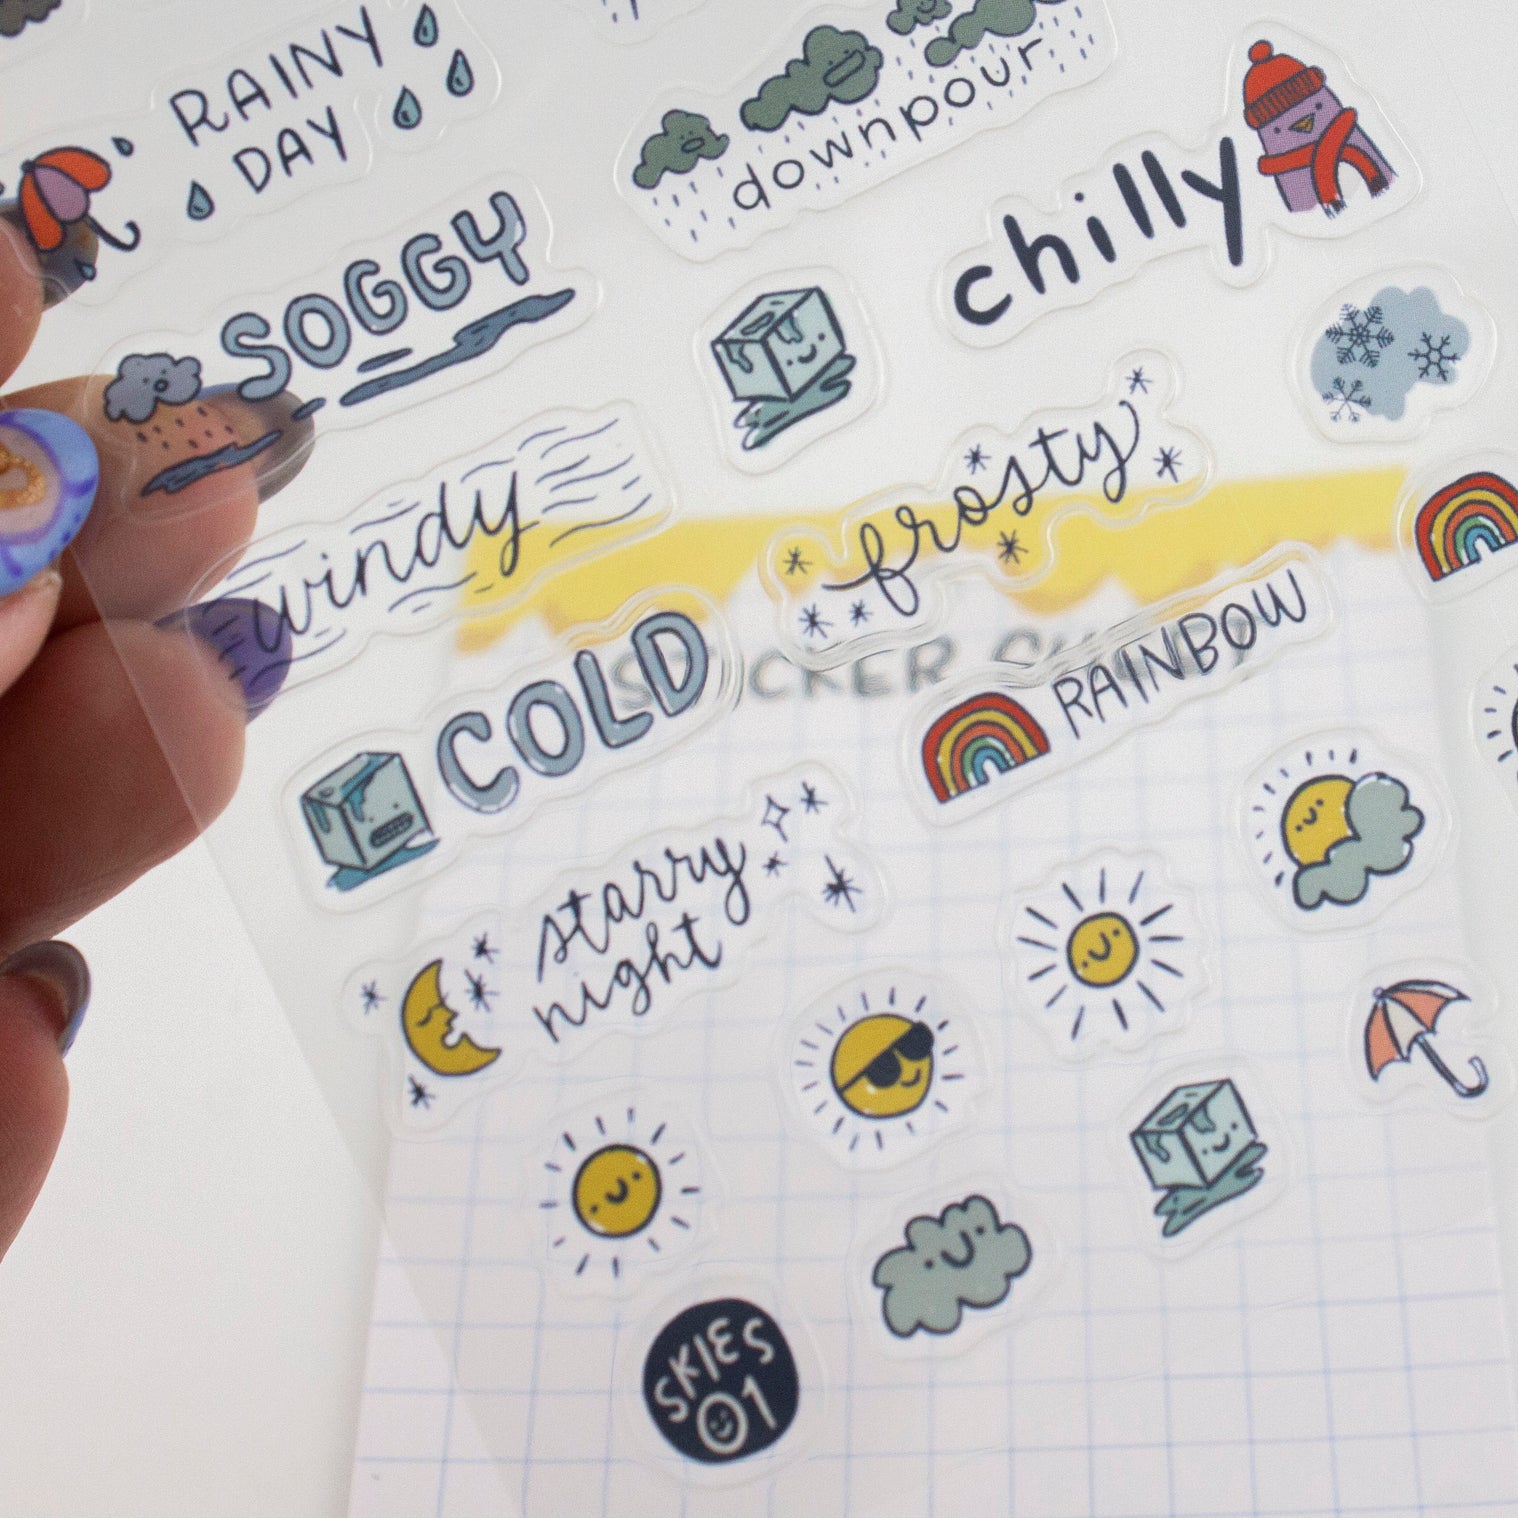 RAINY
DAY
downpour
chilly
SOGGY
windy
frosty
STICKER
COLD
RAINBOW
starry
night
SKIES
01